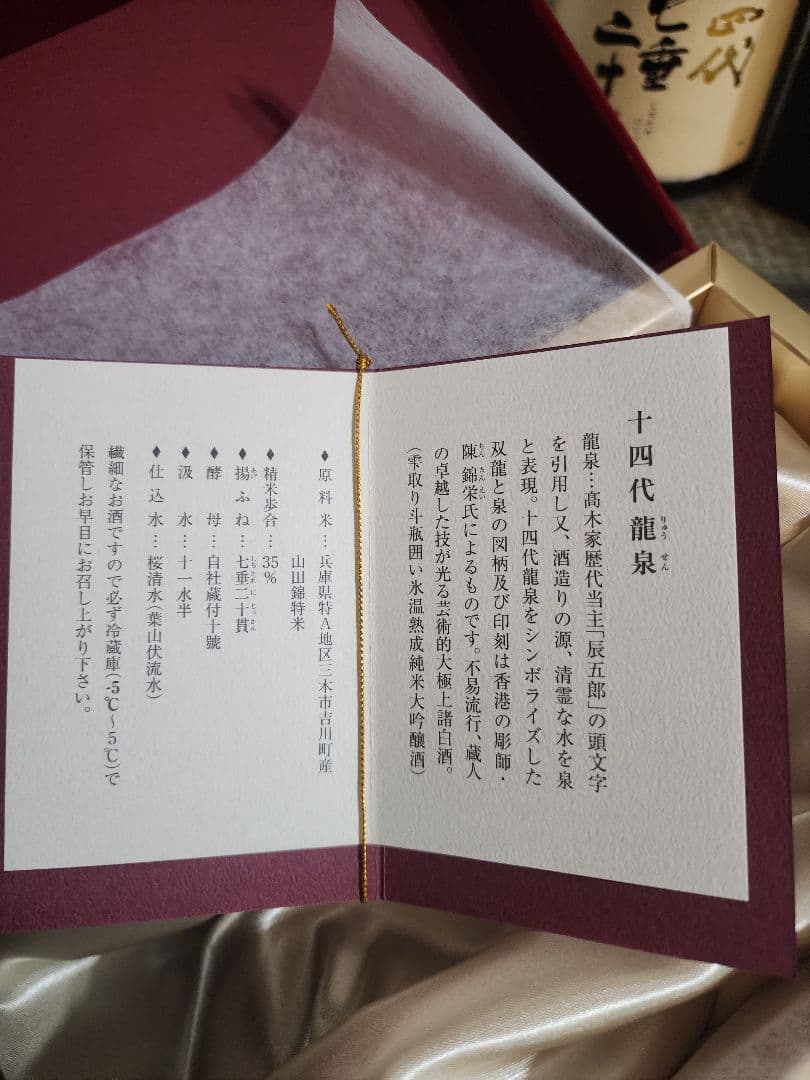 十四代 龍泉
りゅう せん
龍泉…髙木家歴代当主「辰五郎」の頭文字
を引用し又、酒造りの源、清霊な水を泉
と表現。十四代龍泉をシンボライズした
双龍と泉の図柄及び印刻は香港の彫師・
陳 錦栄氏によるものです。不易流行、蔵人
ちん きん えい
の卓越した技が光る芸術的大極上諸白酒。
(雫取り斗瓶囲い氷温熟成純米大吟醸酒)
♦原料米…兵庫県特A地区三木市吉川町産
山田錦特米
♦精米歩合…35%
♦揚ふね…七垂二十貫
あげ
しちたれ に じっかん
♦酵母…自社蔵付十號
♦汲水…十一水半
♦仕込水…桜清水(葉山伏流水)
繊細なお酒ですので必ず冷蔵庫(-5℃～5℃)で
保管しお早目にお召し上がり下さい。
四代
七垂
二十